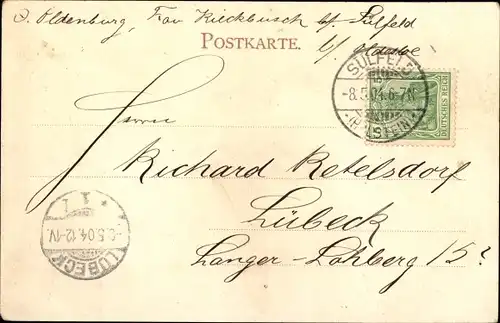 J. Oldenburg, Frau Kieckbusch bei Sülfeld
POSTKARTE.
b/ Oldesloe
SÜLFELD
-8.5.04.6-7N
(HOLSTEIN)
DEUTSCHES REICH
Herrn
Richard Retelsdorf
Lübeck
Langer-Lohberg 15?
* 1 *
-8.5.04.12-1V.
LÜBECK